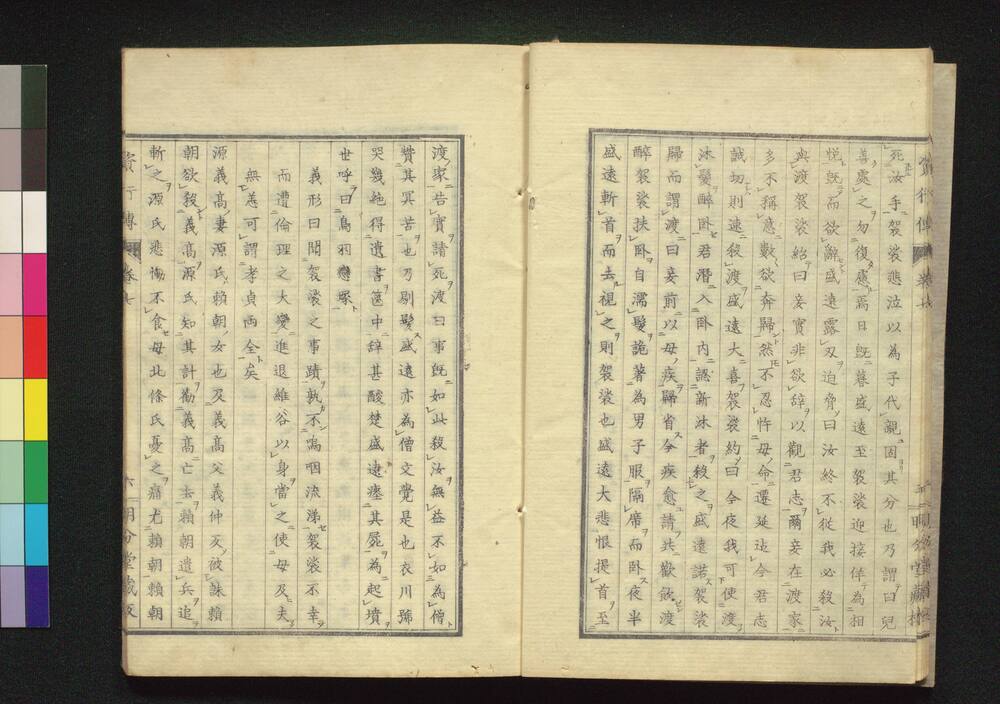 死汝手袈裟悲泣以為子代親固其分也乃謂曰兒
善處之勿復憂焉日既暮盛遠至袈裟迎接佯為相
悦既而欲辭盛遠露刃迫脅曰汝終不從我必殺汝
與渡袈裟紿曰妾實非欲辞以觀君志爾妾在渡家
多不稱意數欲奔歸然不忍忤母命遷延迨今君志
誠切則速殺渡盛遠大喜袈裟約曰今夜我可使渡
沐髮醉臥君潛入臥内認新沐者殺之盛遠諾袈裟
歸而謂渡曰妾前以母疾歸省今疾愈請共歡飲渡
醉袈裟扶臥自濡髮詭著為男子服隔席而臥夜半
盛遠斬首而去視之則袈裟也盛遠大悲恨提首至
渡家告實請死渡曰事既如此殺汝無益不如為僧
贊其冥苦也乃剔髮盛遠亦為僧文覺是也衣川號
哭幾絶得遺書篋中辭甚酸楚盛遠瘞其屍為起墳
世呼曰鳥羽戀塚
義形曰聞袈裟之事蹟孰不嗚咽流涕袈裟不幸
而遭倫理之大變進退維谷以身當之使母及夫
無恙可謂孝貞兩全矣
源義高妻源氏賴朝女也及義高父義仲反被誅賴
朝欲殺義高源氏知其計勸義高亡去賴朝遣兵追
斬之源氏悲慟不食母北條氏憂之痛尤賴朝賴朝